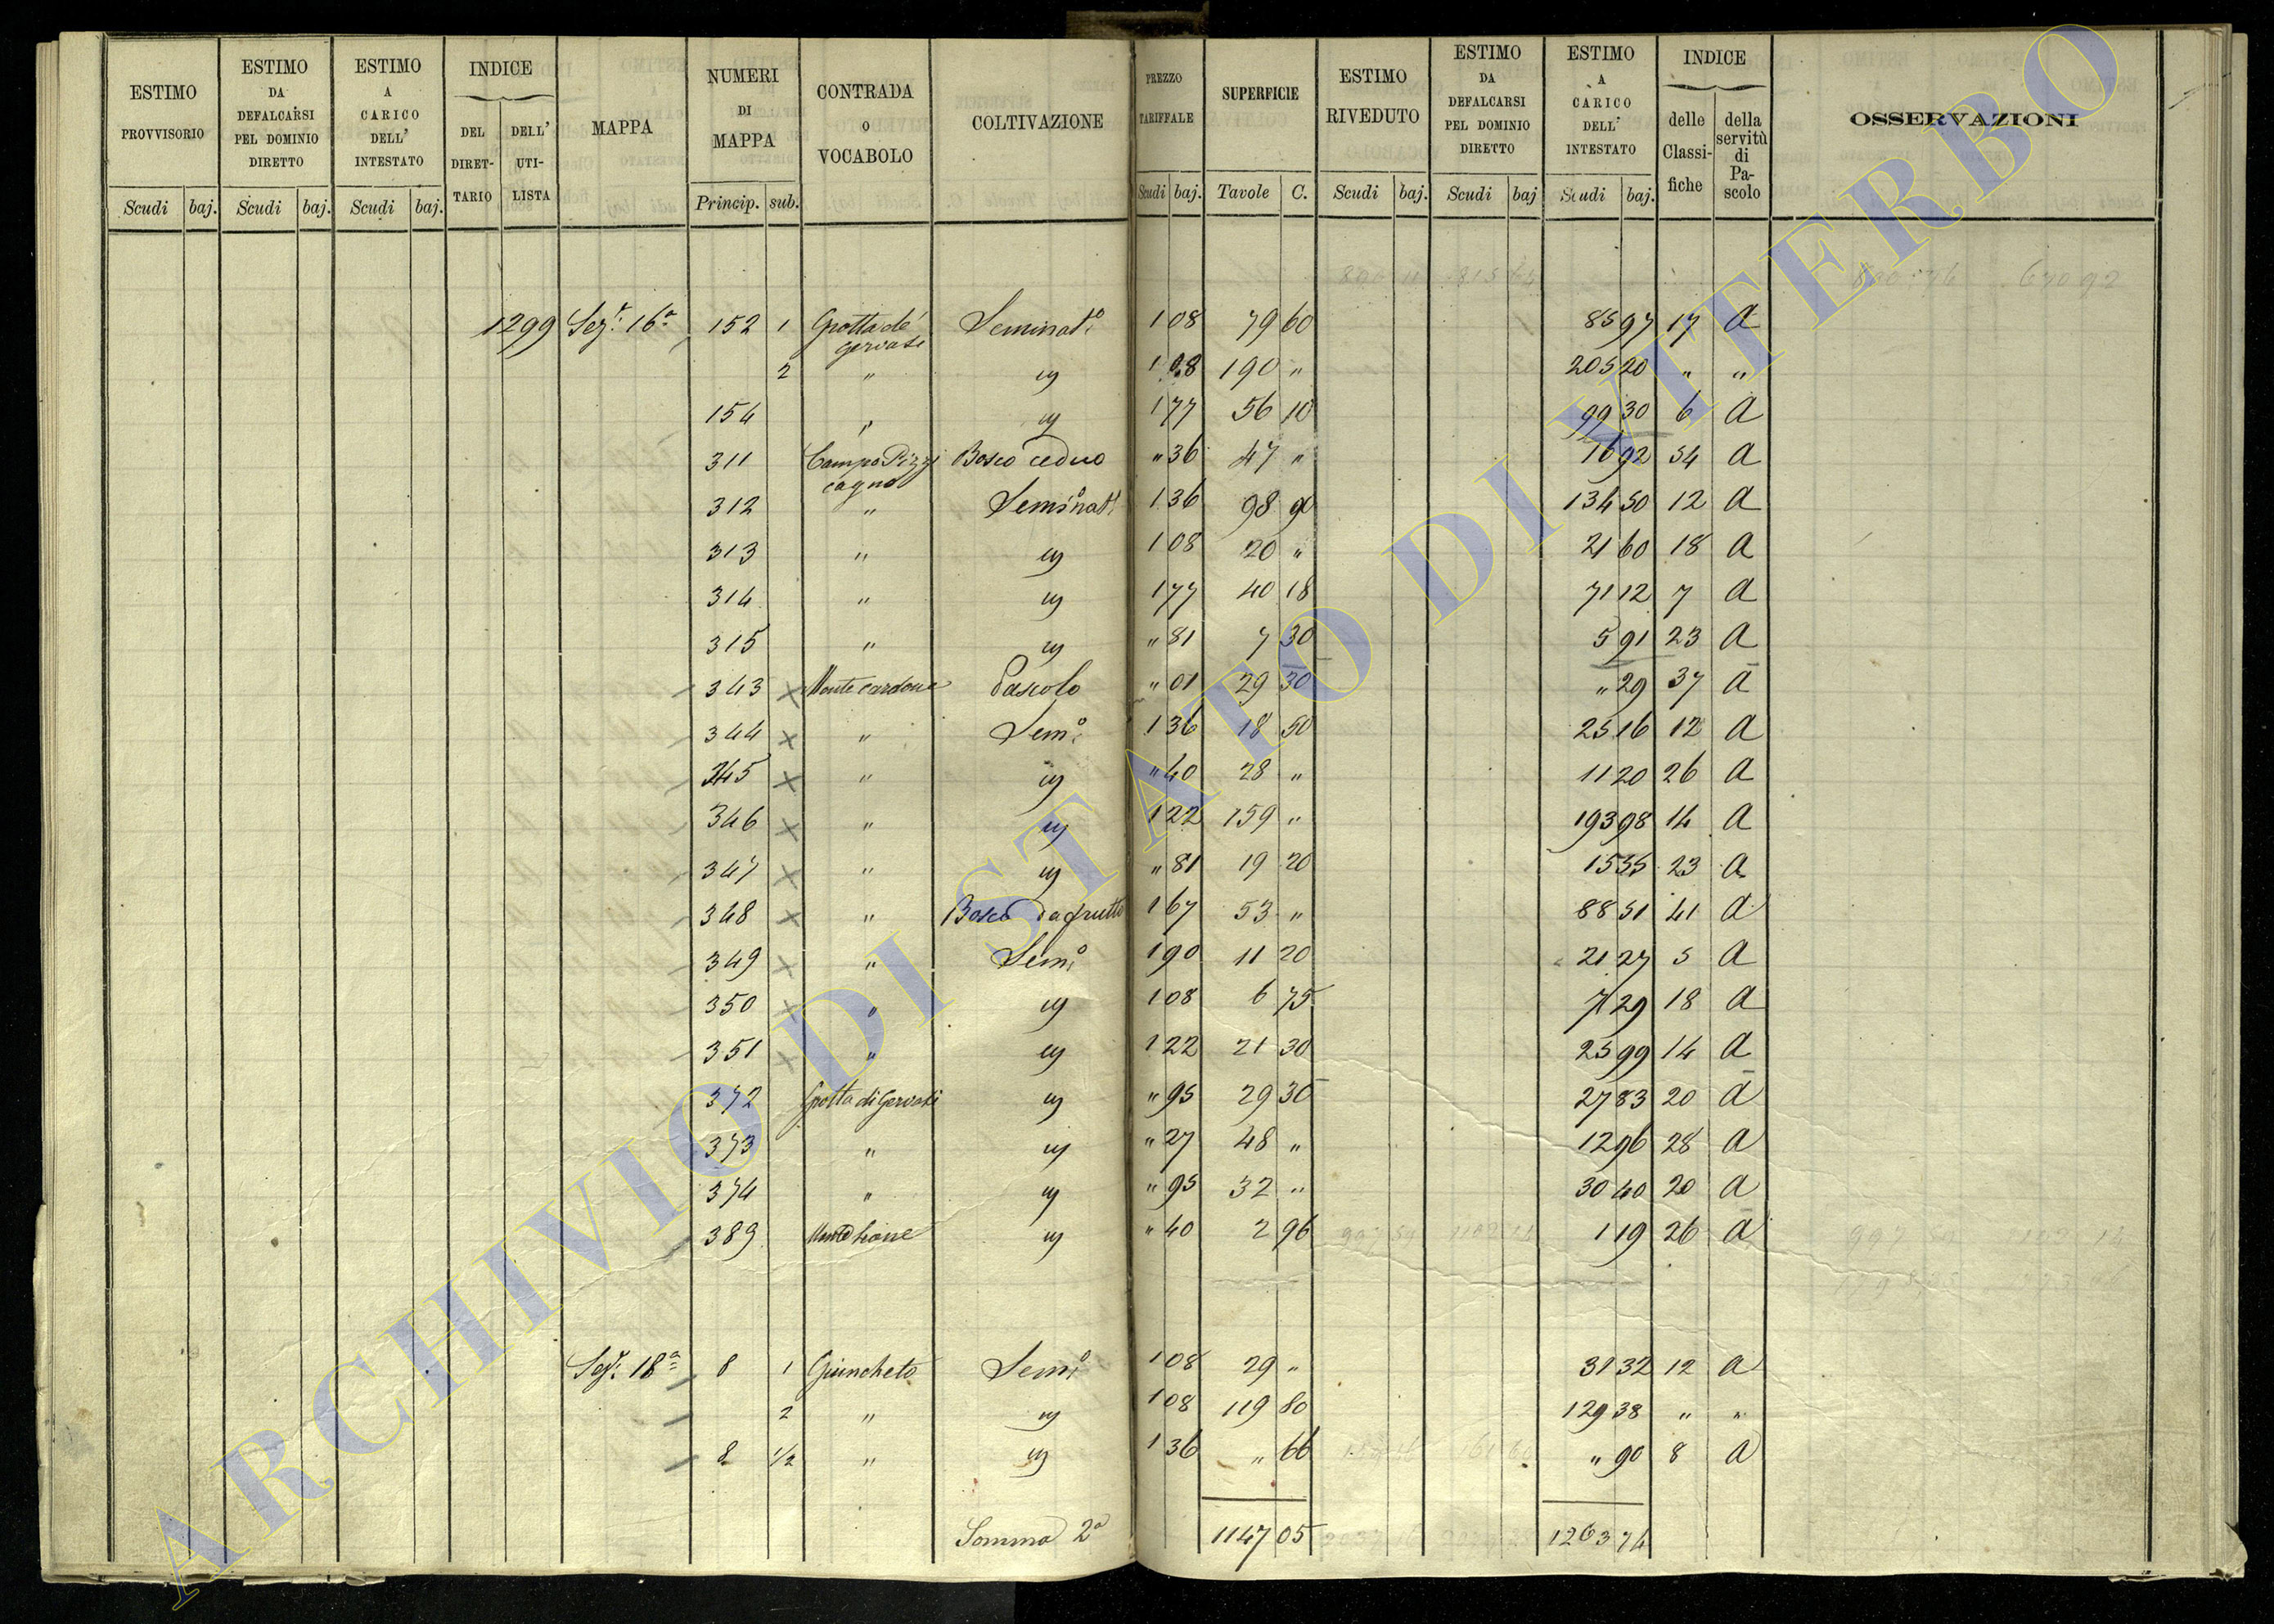 ESTIMO PROVVISORIO | ESTIMO DA DEFALCARSI PEL DOMINIO DIRETTO | ESTIMO A CARICO DELL' INTESTATO | INDICE DEL DIRET-TARIO | DELL' UTI-LISTA | MAPPA | NUMERI DI MAPPA | CONTRADA O VOCABOLO | COLTIVAZIONE | PREZZO TARIFFALE | SUPERFICIE | ESTIMO RIVEDUTO | ESTIMO DA DEFALCARSI PEL DOMINIO DIRETTO | ESTIMO A CARICO DELL' INTESTATO | INDICE delle Classi-fiche | della servitù di Pa-scolo | OSSERVAZIONI
Scudi | baj. | Scudi | baj. | Scudi | baj. | Princip. | sub. | Scudi | baj. | Tavole | C. | Scudi | baj. | Scudi | baj | Scudi | baj.
1299 Sezr. 16a 152 1 Grotta de' Gervasi Seminato 1 08 79 60 85 97 17 a
2 " id 1 08 190 " 205 20 " "
154 " id 1 77 56 10 99 30 6 a
311 Campo Pizzicagno Bosco ceduo " 36 47 " 16 92 54 a
312 " Seminato 1 36 98 90 134 50 12 a
313 " id 1 08 20 " 21 60 18 a
314 " id 1 77 40 18 71 12 7 a
315 " id " 81 7 30 5 91 23 a
343 x Monte cardone Pascolo " 01 29 30 " 29 37 a
344 x " Semo 1 36 18 50 25 16 12 a
345 x " id " 40 28 " 11 20 26 a
346 x " id 1 22 159 " 193 98 14 a
347 x " id " 81 19 20 15 35 23 a
348 x " Bosco da frutto 1 67 53 " 88 51 41 a
349 x " Semo 1 90 11 20 21 27 5 a
350 x " id 1 08 6 75 7 29 18 a
351 x " id 1 22 21 30 25 99 14 a
372 Grotta di Gervasi id " 95 29 30 27 83 20 a
373 " id " 27 48 " 12 96 28 a
374 " id " 95 32 " 30 40 20 a
389 id " 40 2 96 1 19 26 a
Sezr. 18a 8 1 Giuncheto Semo 1 08 29 " 31 32 12 a
2 " id 1 08 119 80 129 38 " "
8 1/2 " id 1 36 " 66 " 90 8 a
Somma 2a 1147 05 1263 74
ARCHIVIO DI STATO DI VITERBO